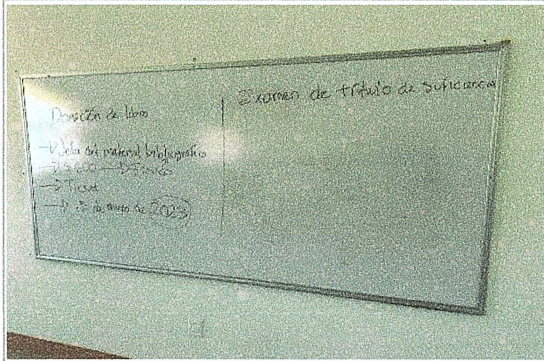 Donación de libro
→ Vale del material bibliográfico
→ Ticket
→ de mayo de 2023
Examen de título de suficiencia